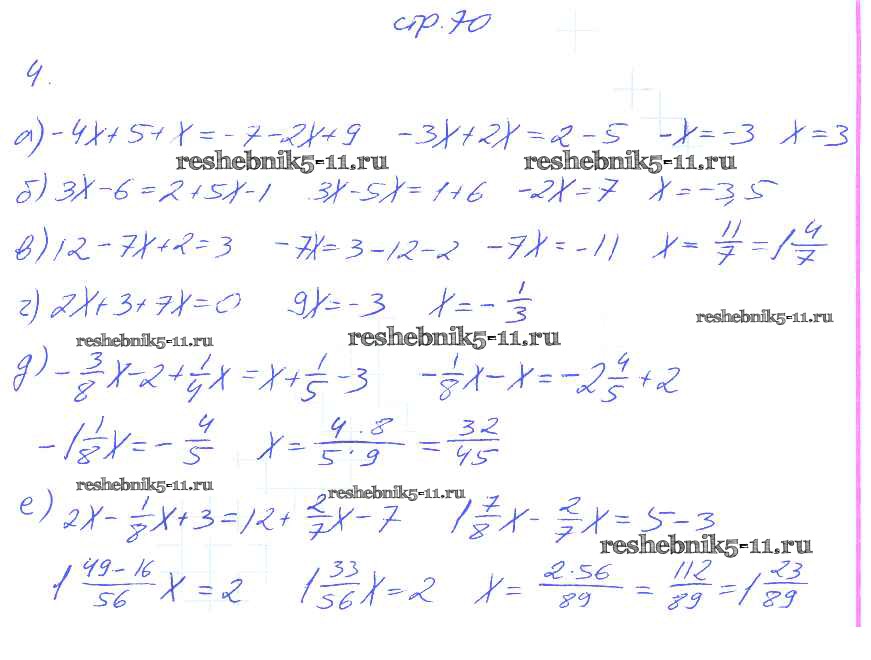 стр. 70
4.
а) -4x + 5 + x = -7 - 2x + 9   -3x + 2x = 2 - 5   -x = -3   x = 3
reshebnik5-11.ru reshebnik5-11.ru
б) 3x - 6 = 2 + 5x - 1   3x - 5x = 1 + 6   -2x = 7   x = -3,5
в) 12 - 7x + 2 = 3   -7x = 3 - 12 - 2   -7x = -11   x = 11/7 = 1 4/7
г) 2x + 3 + 7x = 0   9x = -3   x = -1/3
reshebnik5-11.ru
reshebnik5-11.ru reshebnik5-11.ru
д) -3/8 x - 2 + 1/4 x = x + 1/5 - 3   -1/8 x - x = -2 4/5 + 2
-1 1/8 x = -4/5   x = 4·8/5·9 = 32/45
reshebnik5-11.ru reshebnik5-11.ru
е) 2x - 1/8 x + 3 = 12 + 2/7 x - 7   1 7/8 x - 2/7 x = 5 - 3
reshebnik5-11.ru
1 49-16/56 x = 2   1 33/56 x = 2   x = 2·56/89 = 112/89 = 1 23/89